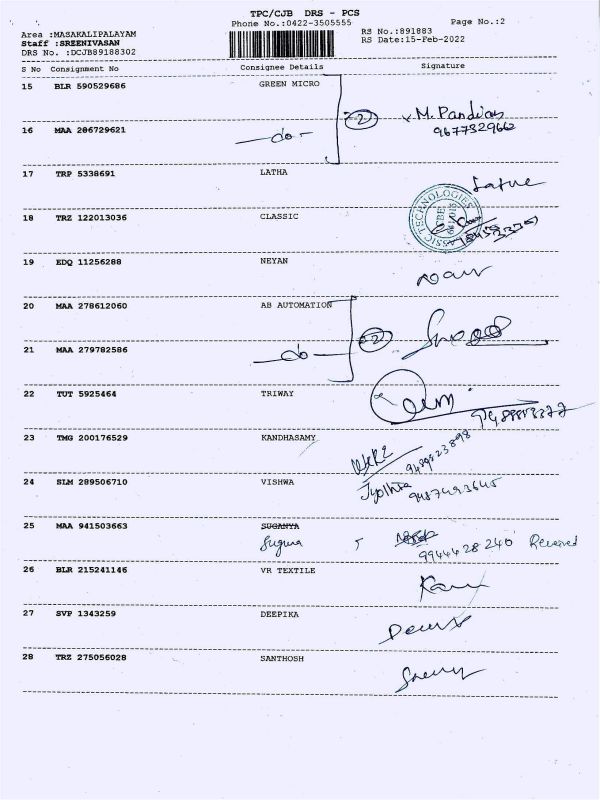 TPC/CJB DRS - PCS
Phone No.:0422-3505555
Page No.:2
Area :MASAKALIPALAYAM
Staff :SREENIVASAN
DRS No. :DCJB89188302
RS No.:891883
RS Date:15-Feb-2022
S No Consignment No Consignee Details Signature
15 BLR 590529686 GREEN MICRO
2 M. Pandian
9677329662
16 MAA 286729621 -do-
17 TRP 5338691 LATHA
18 TRZ 122013036 CLASSIC
CLASSIC TECHNOLOGIES
19 EDQ 11256288 NEYAN
20 MAA 278612060 AB AUTOMATION
2
21 MAA 279782586 -do-
22 TUT 5925464 TRIWAY
23 TMG 200176529 KANDHASAMY
24 SLM 289506710 VISHWA
Jyothi
9487493645
25 MAA 941503663 SUGANYA
Suguna
9944428240 Received
26 BLR 215241146 VR TEXTILE
27 SVP 1343259 DEEPIKA
28 TRZ 275056028 SANTHOSH